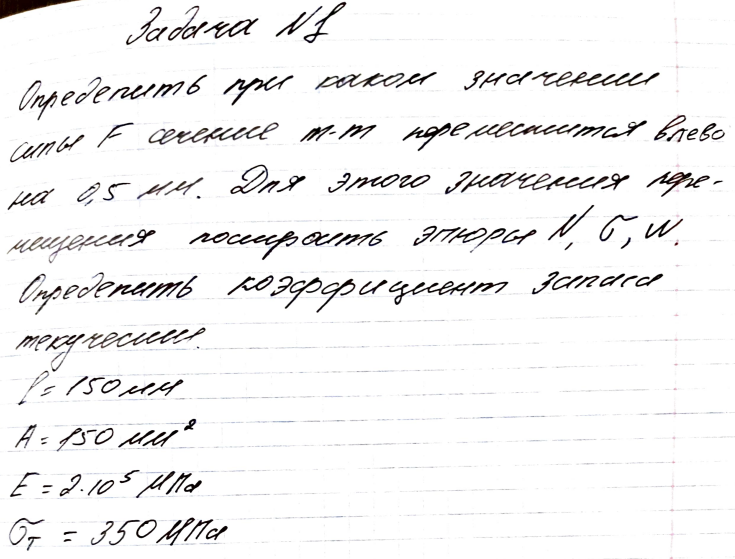 Задача №1
Определить при каком значении
силы F сечение m-m переместится влево
на 0,5 мм. Для этого значения пере-
мещения построить эпюры N, σ, w.
Определить коэффициент запаса
текучести.
l = 150 мм
A = 150 мм²
E = 2·10⁵ МПа
σт = 350 МПа